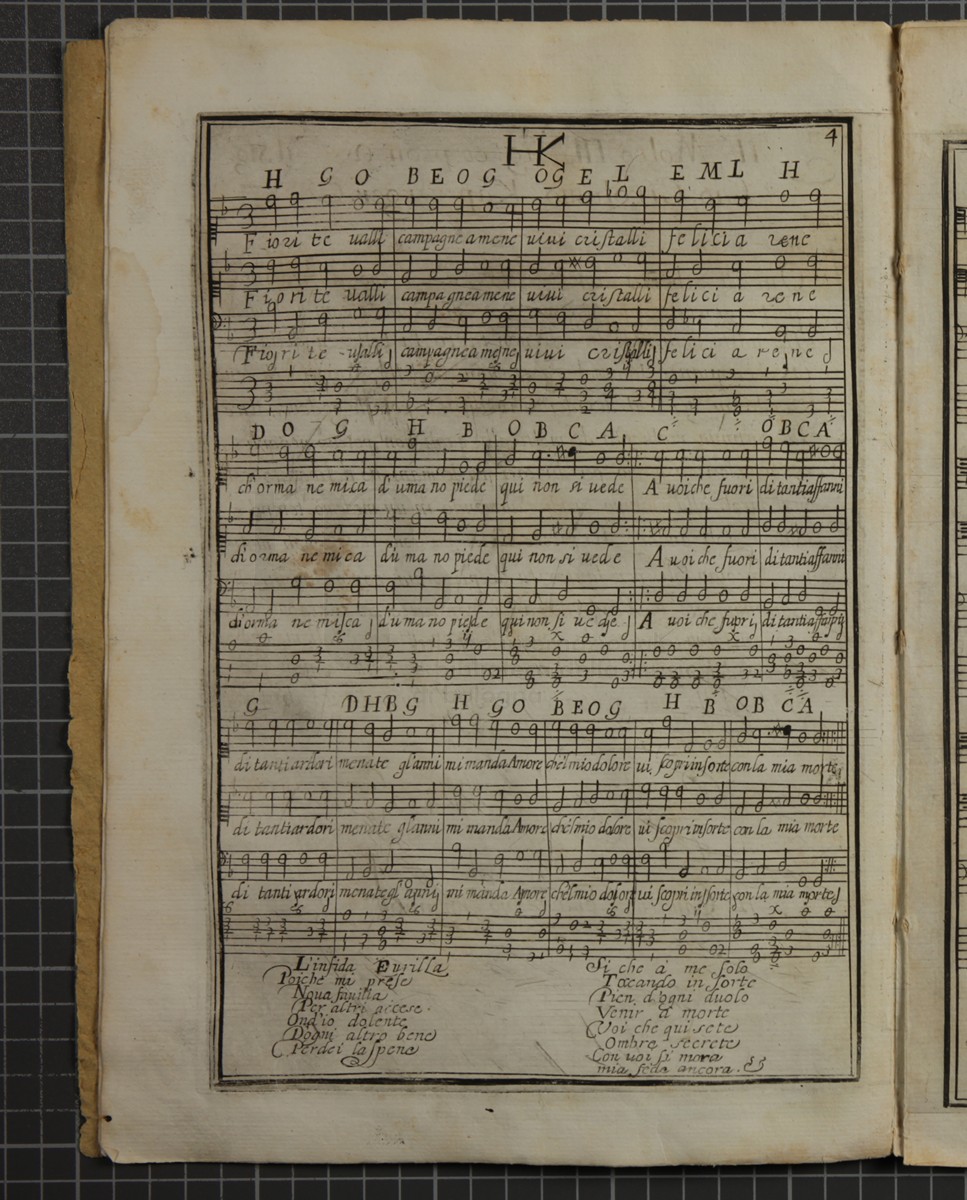 4
HK
H G O B E O G O G E L E M L H
Fiorite ualli campagne amene uiui cristalli felici arene
Fiorite ualli campagne amene uiui cristalli felici arene
Fiorite ualli campagne amene uiui cristalli felici arene
D O G H B O B C A C O B C A
ch'orma ne mica d'umano piede qui non si uede A uoi che fuori di tanti affanni
di orma ne mica d'u mano piede qui non si uede A uoi che fuori di tanti affanni
di orma ne mica d'umano piede qui non si uede A uoi che fuori di tanti
G D H B G H G O B E O G H B O B C A
di tanti ardori menate gl'anni mi manda Amore che'l mio dolore ui scopri in sorte con la mia morte
di tanti ardori menate gl'anni mi manda Amore che'l mio dolore ui scopri in sorte con la mia morte
di tanti ardori menate gl'anni mi manda Amore che'l mio dolore ui scopri in sorte con la mia morte
L'infida Eurilla
Poiche mi prese
Noua fauilla
Per altri accese.
Ond'io dolente
Dogni altro bene
Perdei la spene
Si che à me solo
Toccando in sorte
Pien d'ogni duolo
Venir à morte
Voi che qui sete
Ombre secrete
Con uoi si mora
mia fede ancora.